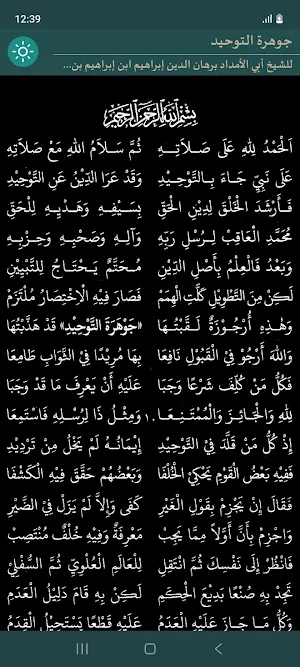 12:39
جوهرة التوحيد
للشيخ أبي الأمداد برهان الدين إبراهيم ابن إبراهيم بن...
بِسْمِ اللَّهِ الرَّحْمَنِ الرَّحِيمِ
اَلْحَمْدُ لِلهِ عَلَى صَلَاتِـــهِ ثُمَّ سَـلَامُ اللهِ مَعْ صَلَاتِهِ
عَلَى نَبِيٍّ جَـاءَ بِـالتَّوْحِيدِ وَقَدْ عَرَا الدِّيْنُ عَنِ التَّوْحِيْدِ
فَـأَرْشَدَ الْخَلْقَ لِدِيْنِ الْحَقِّ بِسَيْفِـهِ وَهَدْيِـهِ لِلْحَقِّ
مُحَمَّدِ الْعَاقِبْ لِـرُسْلِ رَبِّهِ وَآلِـهِ وَصَحْبِـهِ وَحِزْبِـهِ
وَبَعْدُ فَالْعِلْمُ بِأَصْلِ الدِّيْنِ مُحَتَّمٌ يَـحْتَـاجُ لِلتَّبْيِيْنِ
لَكِنْ مِنَ التَّطْوِيْلِ كَلَّتِ الْهِمَمْ فَصَارَ فِيْهِ الْاِخْتِصَارُ مُلْتَزَمْ
وَهٰـذِهِ أُرْجُـوْزَةٌ لَـقَّبْتُـهَـا «جَوْهَرَةَ التَّوْحِيْدِ» قَدْ هَذَّبْتُهَا
وَاللهَ أَرْجُوْ فِي الْقَبُوْلِ نَافِعَا بِهَا مُرِيْدًا فِي الثَّوَابِ طَامِعَا
فَكُلُّ مَنْ كُلِّفَ شَرْعًا وَجَبَا عَلَيْهِ أَنْ يَعْرِفَ مَا قَدْ وَجَبَا
لِلهِ وَالْجَـائِـزَ وَالْمُمْتَـنِـعَـا ١٠ وَمِثْـلُ ذَا لِرُسْلِهِ فَاسْتَمِعَا
إِذْ كُلُّ مَنْ قَلَّدَ فِي التَّوْحِيْدِ إِيْمَانُـهُ لَمْ يَخْلُ مِنْ تَرْدِيْدِ
فَفِيْهِ بَعْضُ الْقَوْمِ يَحْكِي الْخُلْفَا وَبَعْضُهُمْ حَقَّقَ فِيْهِ الْكَشْفَا
فَقَالَ إِنْ يَجْزِمْ بِقَوْلِ الْغَيْرِ كَفَى وَإِلَّا لَمْ يَزَلْ فِي الضَّيْرِ
وَاجْزِمْ بِأَنَّ أَوَّلًا مِمَّا يَجِبْ مَعْرِفَةٌ وَفِيْهِ خُلْفٌ مُنْتَصِبْ
فَانْظُرْ إِلَى نَفْسِكَ ثُمَّ انْتَقِلِ لِلْعَالَمِ الْعُلْوِيِّ ثُمَّ السُّفْلِيْ
تَجِدْ بِهِ صُنْعًا بَدِيْعَ الْحِكَمِ لَكِنْ بِهِ قَامَ دَلِيْلُ الْعَدَمِ
وَكُلُّ مَا جَـازَ عَلَيْهِ الْعَدَمُ عَلَيْهِ قَطْعًا يَسْتَحِيْلُ الْقِدَمُ